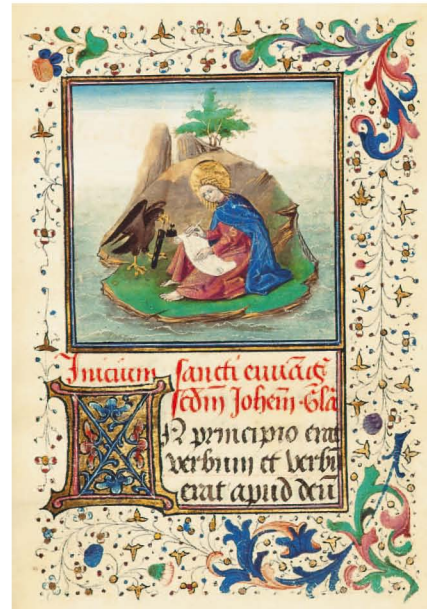 Inicium sancti euuāg̃
scdm̄ Johem̄. Gl̄a
IN principio erat
verbum et verbū
erat apud deū